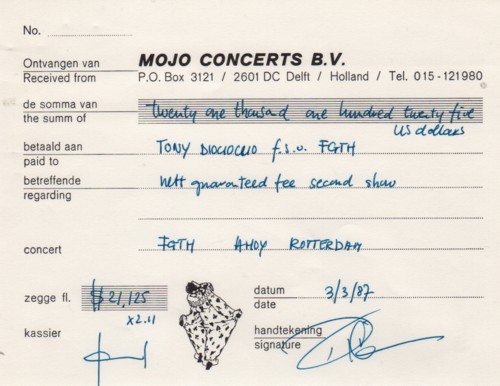 No.
Ontvangen van
Received from
MOJO CONCERTS B.V.
P.O. Box 3121 / 2601 DC Delft / Holland / Tel. 015-121980
de somma van
the summ of
twenty one thousand one hundred twenty five
US dollars
betaald aan
paid to
TONY DIOCIOCCIO f.s.o. FGTH
betreffende
regarding
nett guaranteed fee second show
concert
FGTH AHOY ROTTERDAM
zegge fl.
$ 21,125
x2.11
datum
date
3/3/87
kassier
handtekening
signature